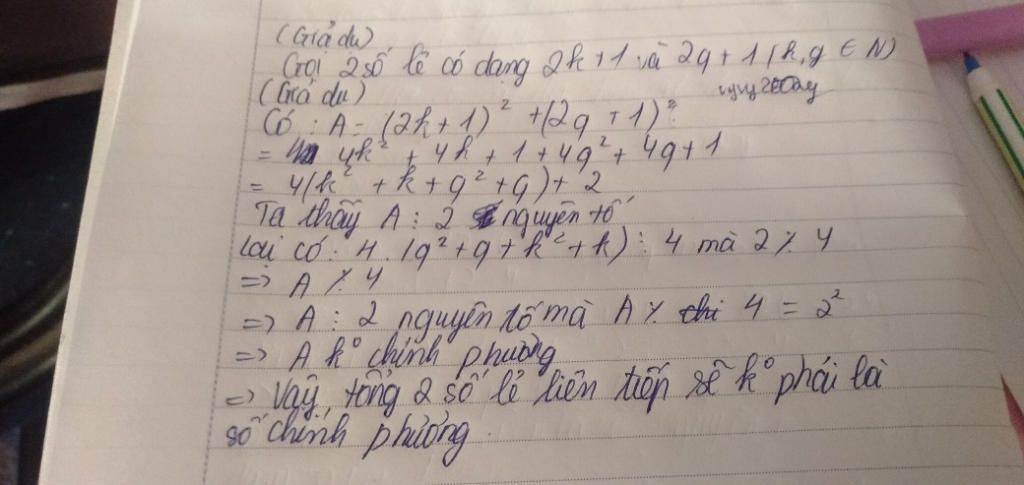 (Giả dụ)
Gọi 2 số lẻ có dạng 2k+1 và 2q+1 (k,q ∈ N)
(Giả dụ)
Có : A = (2k+1)² + (2q+1)²
= 4k² + 4k + 1 + 4q² + 4q + 1
= 4(k² + k + q² + q) + 2
Ta thấy A ⋮ 2 nguyên tố
Lại có : 4.(q² + q + k² + k) ⋮ 4 mà 2 ⋮̸ 4
=> A ⋮̸ 4
=> A ⋮ 2 nguyên tố mà A ⋮̸ 4 = 2²
=> A k° chính phương
=> Vậy tổng 2 số lẻ liên tiếp sẽ k° phải là
số chính phương.